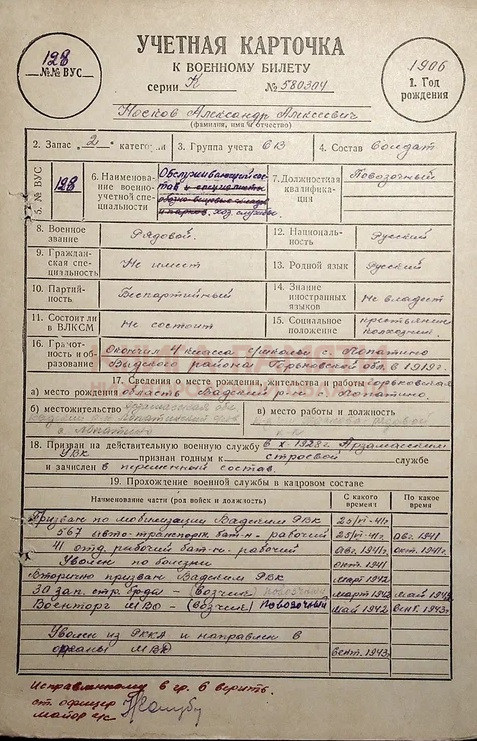 128
№№ ВУС
УЧЕТНАЯ КАРТОЧКА
К ВОЕННОМУ БИЛЕТУ
серии К № 580304
1906
1. Год рождения
Носков Александр Алексеевич
(фамилия, имя и отчество)
2. Запас 2 категории
3. Группа учета СВ
4. Состав Солдат
5. № ВУС 128
6. Наименование военно-учетной специальности Обслуживающий состав
хоз. службы.
7. Должностная квалификация Повозочный
8. Военное звание Рядовой.
12. Национальность Русский
9. Гражданская специальность Не имеет
13. Родной язык Русский
10. Партийность Беспартийный
14. Знание иностранных языков Не владеет
11. Состоит ли в ВЛКСМ Не состоит
15. Социальное положение крестьянин
16. Грамотность и образование Окончил 4 класса школы с. Лопатино
Вадского района Горьковской обл. в 1919 г.
17. Сведения о месте рождения, жительства и работы Горьковская
а) место рождения область Вадский р-н Лопатино.
б) местожительство
в) место работы и должность
18. Призван на действительную военную службу в X. 1928 г. Арзамасским
УВК признан годным к строевой службе
и зачислен в переменный состав.
19. Прохождение военной службы в кадровом составе
Наименование части (род войск и должность)
С какого времени
По какое время
Призван по мобилизации Вадским РВК 25/VI-41г.
567 авто-транспорт. бат-н. рабочий 25/VI-41г. авг. 1941
41 отд. рабочий бат-н. рабочий авг. 1941г. окт. 1941г.
Уволен по болезни окт. 1941
Вторично призван Вадским РВК март 1942
30 зап. стр. бр-да - (возчик) повозочный март 1942 май 1942
Военторг МВО - (возчик) повозочный май 1942 сент. 1943г.
Уволен из РККА и направлен в
органы МВД сент. 1943г.
Исправленному в гр. 6 верить.
ст. офицер
майор